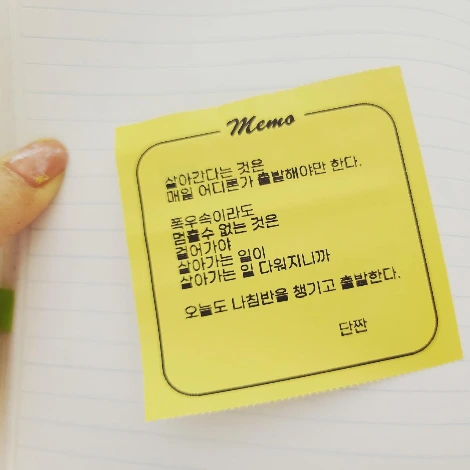 Memo
살아간다는 것은
매일 어디론가 출발해야만 한다.
폭우속이라도
멈출수 없는 것은
걸어가야
살아가는 일이
살아가는 일 다워지니까
오늘도 나침반을 챙기고 출발한다.
단짠